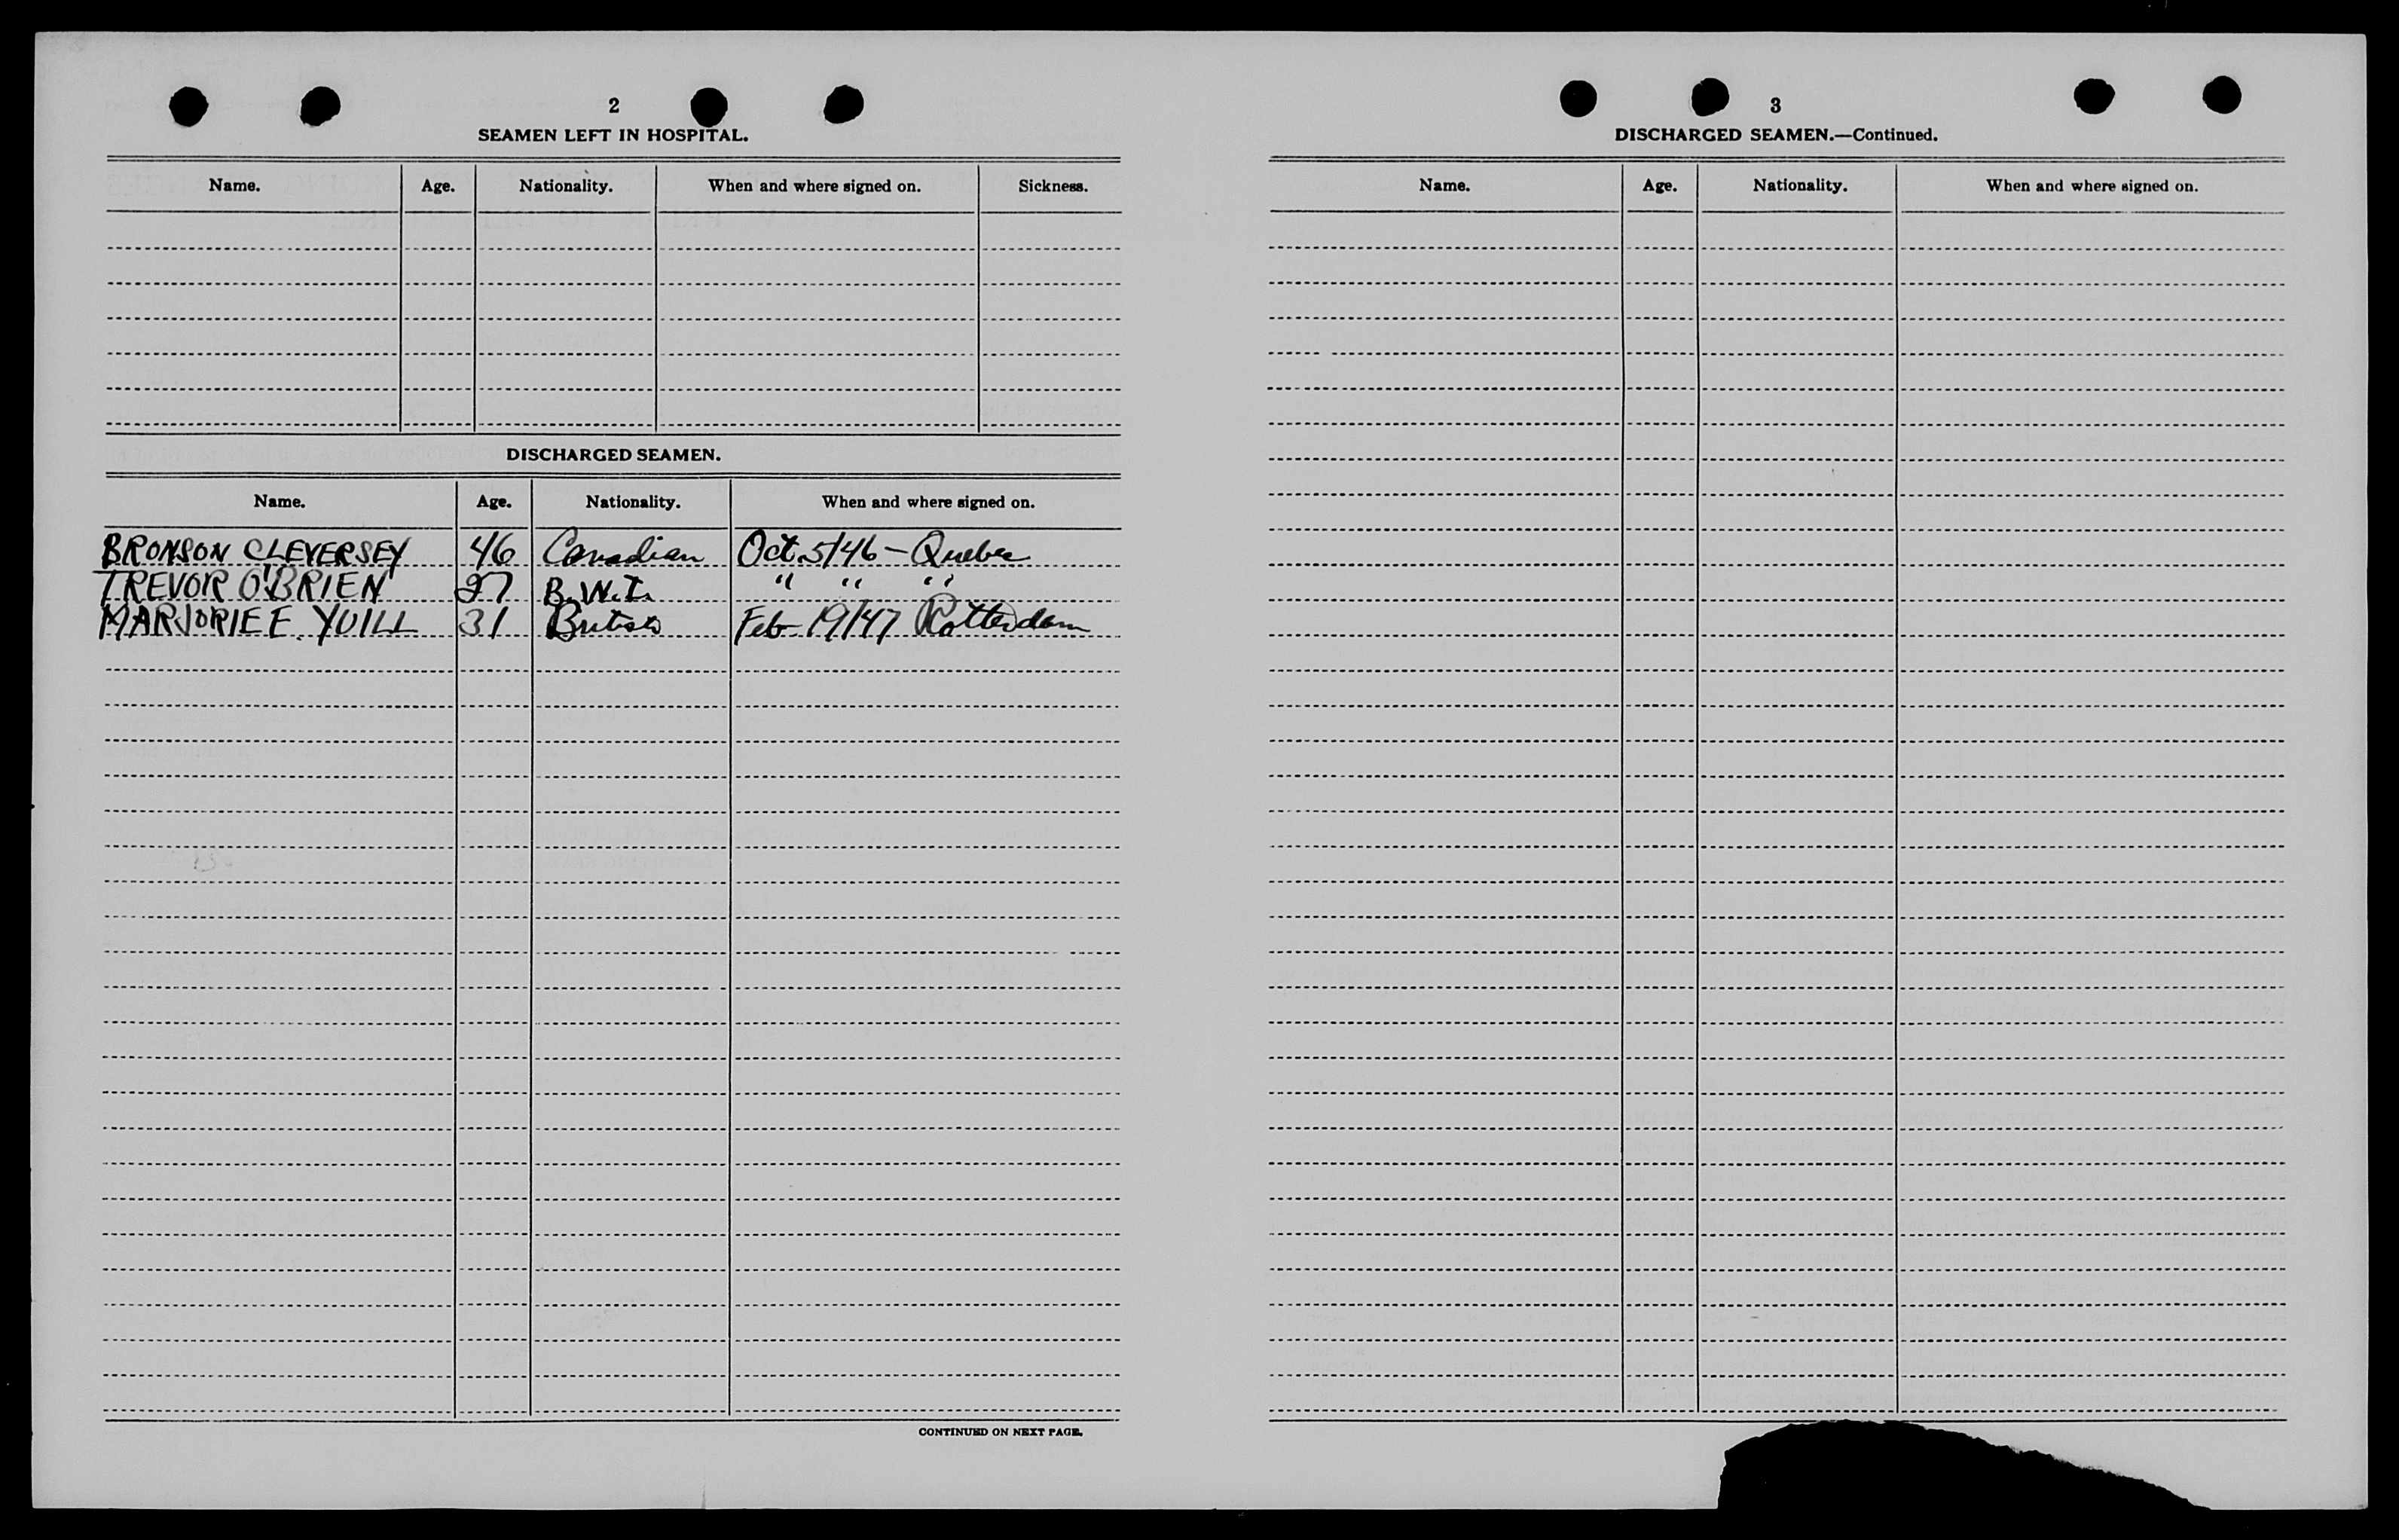 2
SEAMEN LEFT IN HOSPITAL.
Name. Age. Nationality. When and where signed on. Sickness.
DISCHARGED SEAMEN.
Name. Age. Nationality. When and where signed on.
BRONSON CLEVERSEY 46 Canadian Oct. 5/46 - Quebec
TREVOR O'BRIEN 27 B.W.I. " " "
MARJORIE E. YUILL 31 British Feb-19/47 Rotterdam
CONTINUED ON NEXT PAGE.
3
DISCHARGED SEAMEN.—Continued.
Name. Age. Nationality. When and where signed on.